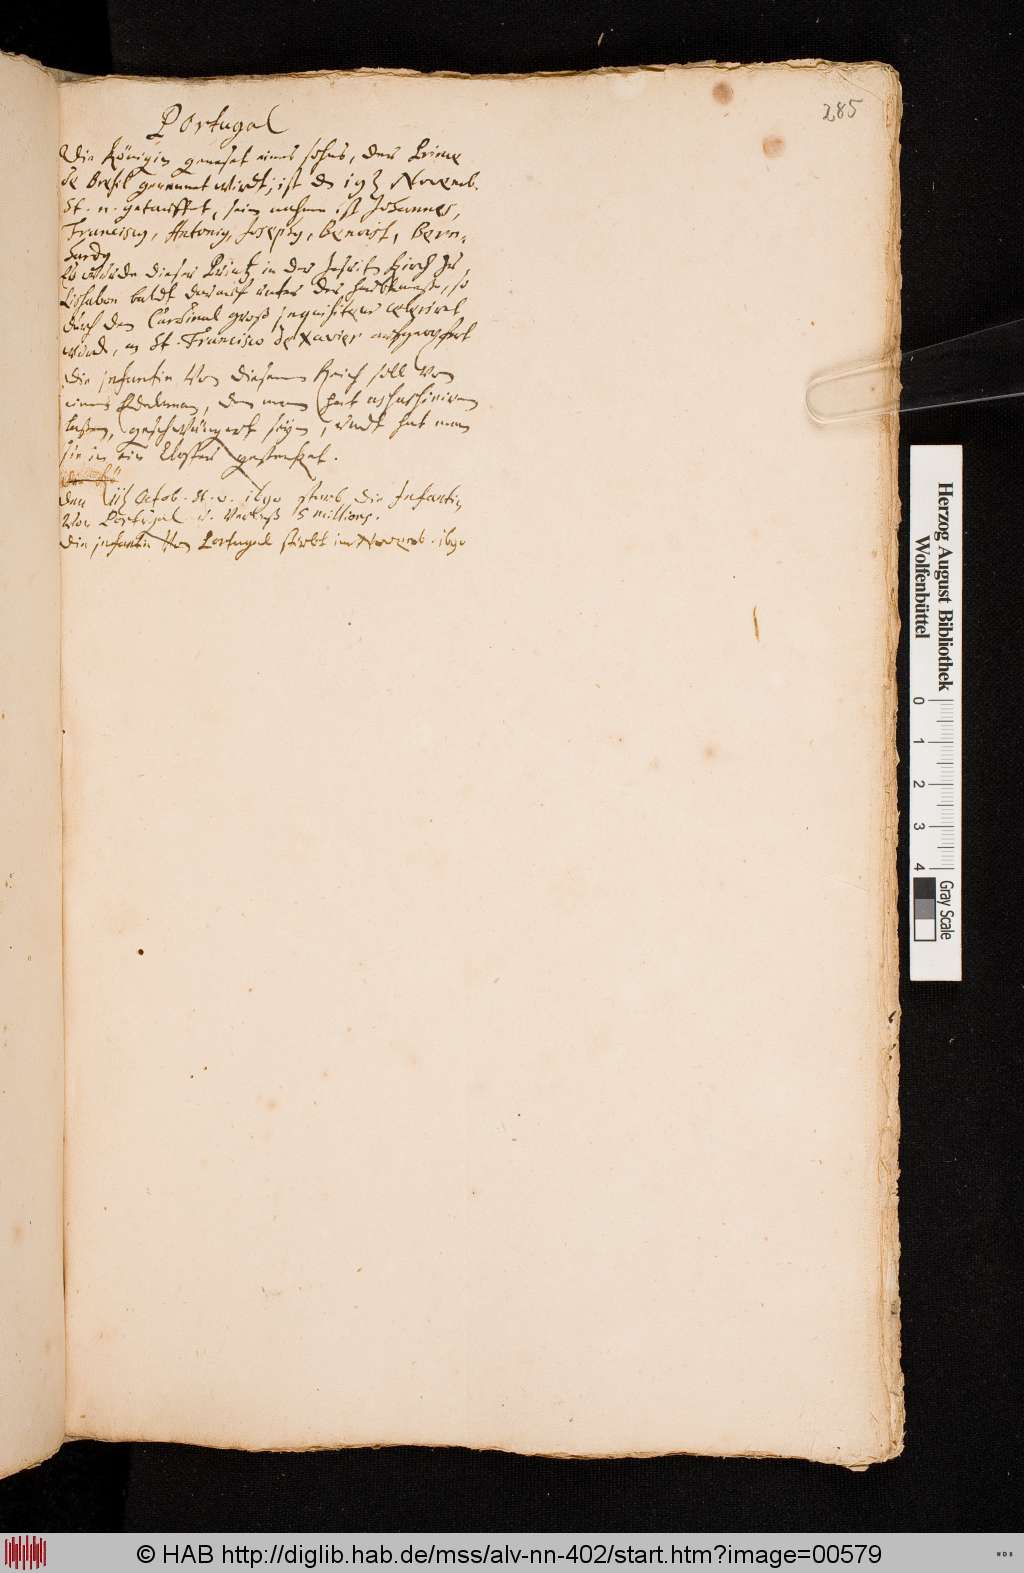 285
Portugal
Die Königin geneset eines sohns, der Prince
de Bresil genennet wirdt, ist d. 19 Novemb.
St. n. getaufft, sein nahme ist Johannes,
Franciscus, Antonius, Josephus, Benoist, Bern-
hardus
Es wurde dieser Printz in der Jesuiten Kirch zu
Lishabon baldt darauf unter der
durch den Cardinal groß inquisiteur celebriret
wurde, an St. Francisco de Xavier aufgeopfert
Die infantin von diesem Reich soll von
einem Edelman, den man hat assassiniren
laßen, geschwängert seyn, undt hat man
sie in ein Closter gestecket.
den Octob. st. v. 1690 starb die Infantin
von Portugal 5 millions.
Die infantin von Portugal stirbt im Novemb. 1690
Herzog August Bibliothek
Wolfenbüttel
0 1 2 3 4
Gray Scale
© HAB http://diglib.hab.de/mss/alv-nn-402/start.htm?image=00579